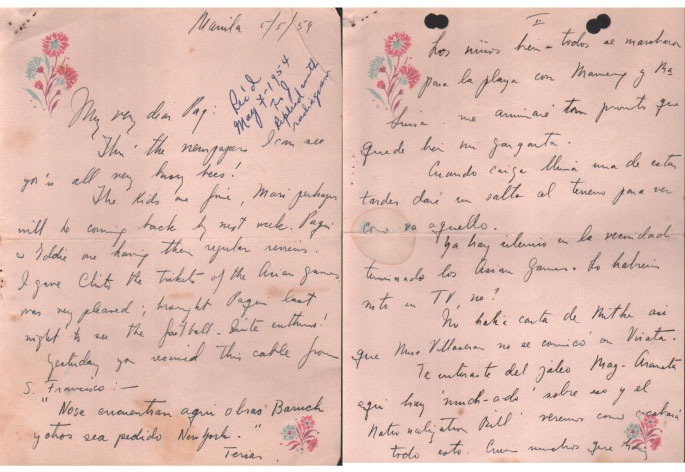 Manila 5/5/54
Rec'd
May 7-1954
My very dear Paqi:
Thru the newspapers I can see
you're all very busy bees!
The kids are fine, Mari perhaps
will be coming back by next week. Paqui
& Eddie are having their regular reviews.
I gave Chito the tickets of the Asian games,
was very pleased; brought Paqui last
night to see the football. Quite enthus!
Yesterday you received this cable from
S. Francisco:—
"No se encuentran aqui obras Baruch
y otros sea pedido New York."
II
Los niños bien - todos se marcharon
para la playa con Mameng y Ma
Luisa. me animaré tan pronto que
quede bien mi garganta.
Cuando caiga lluvia una de estas
tardes daré un salto al terreno para ver
como va aquello.
Ya hay silencio en la vecindad
terminado los Asian Games. Lo habreis
visto en TV, no?
No había carta de así
que Miss Villa no se comicó con
Te enteraste del jaleo Mag-Araneta
aqui hay 'much-ado' sobre eso y el
Naturalization Bill' veremos como acabará
todo esto. Creen muchos que hay